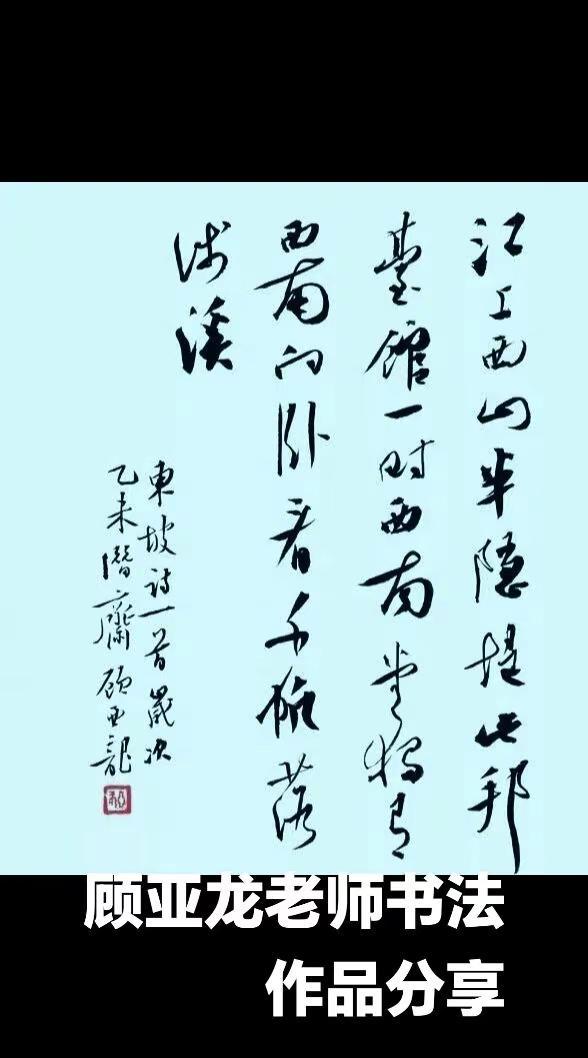 江上西山半隱堤此邦
臺館一时西南堂獨有
西南向卧看千帆落
浅溪
東坡诗一首歲次
乙未潛齋顾亚龍
顾亚龙老师书法
作品分享